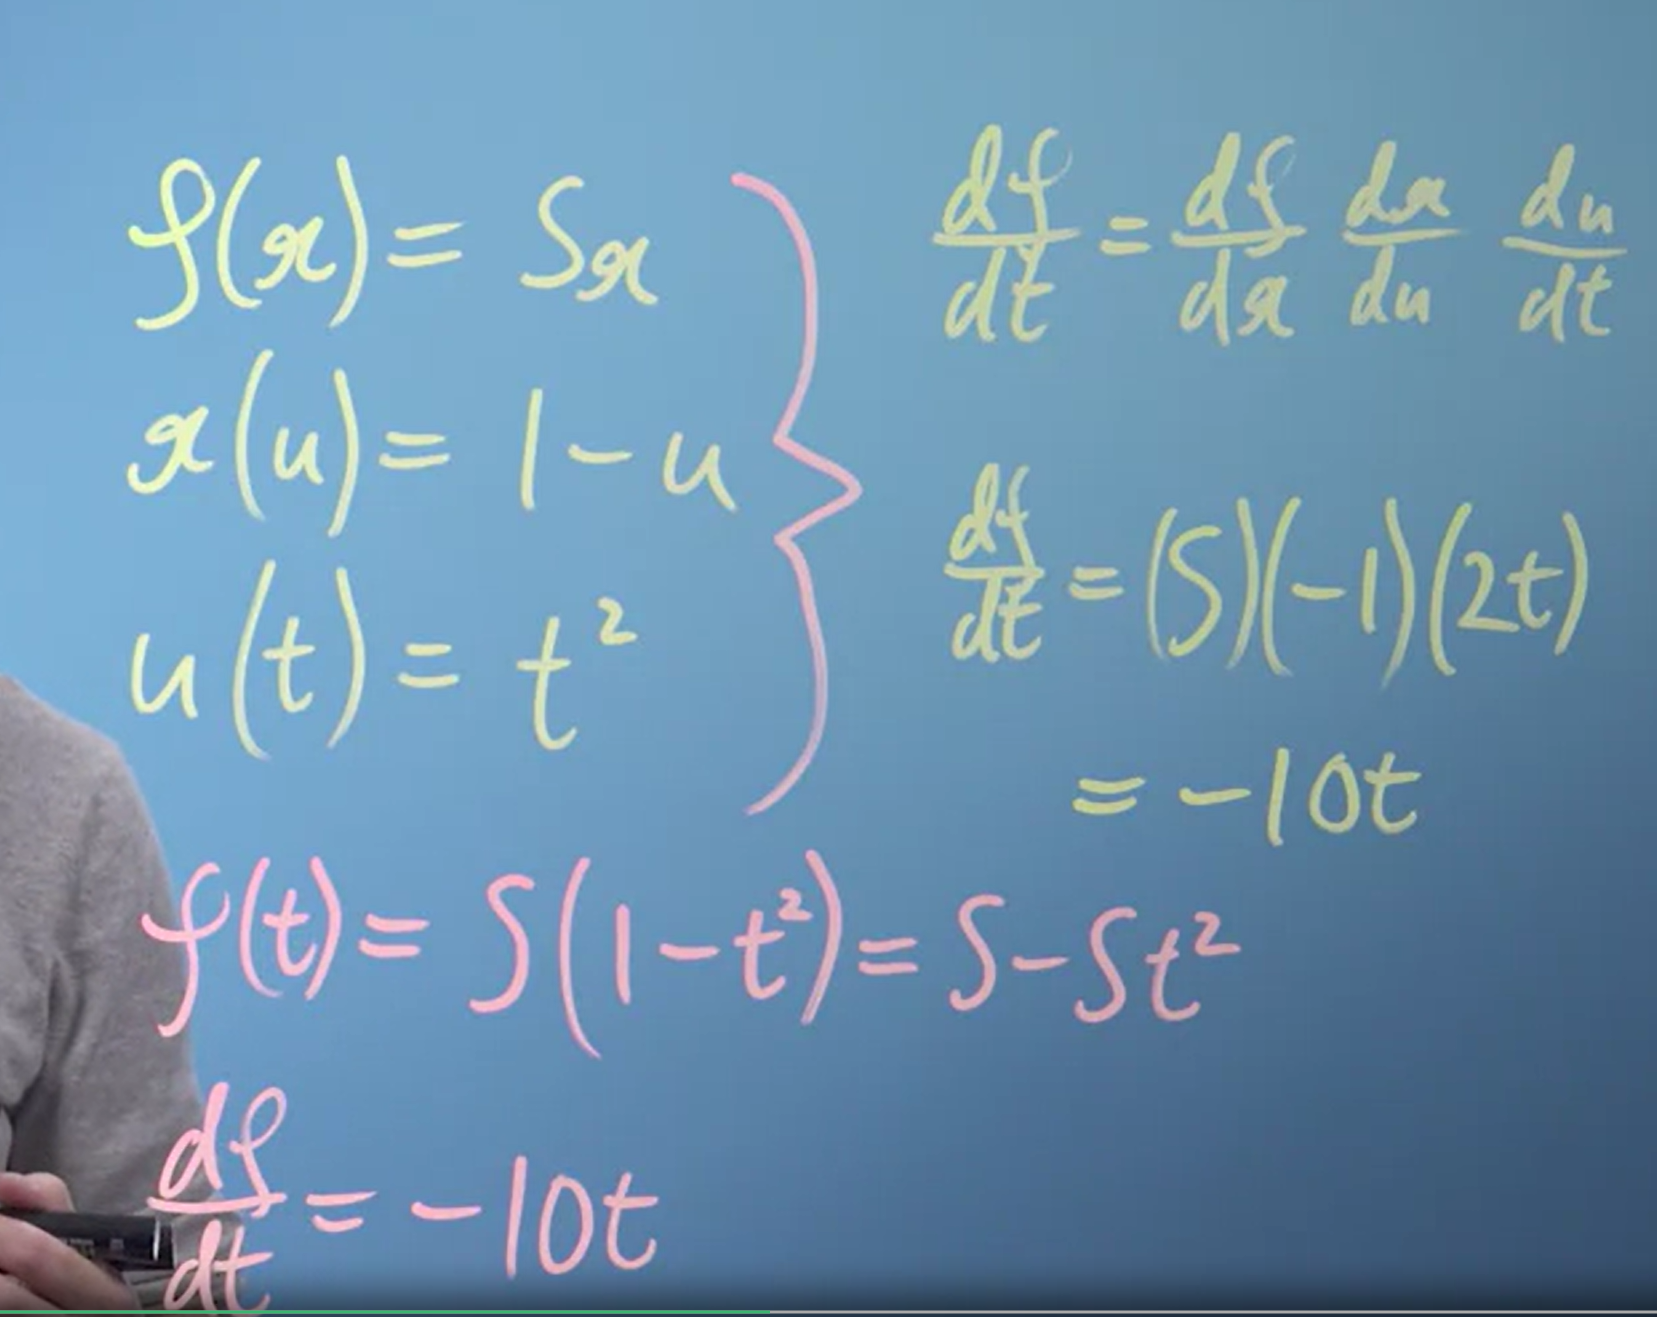 f(x) = 5x
x(u) = 1 - u
u(t) = t²
df/dt = df/dx dx/du du/dt
df/dt = (5)(-1)(2t)
= -10t
f(t) = 5(1 - t²) = 5 - 5t²
df/dt = -10t